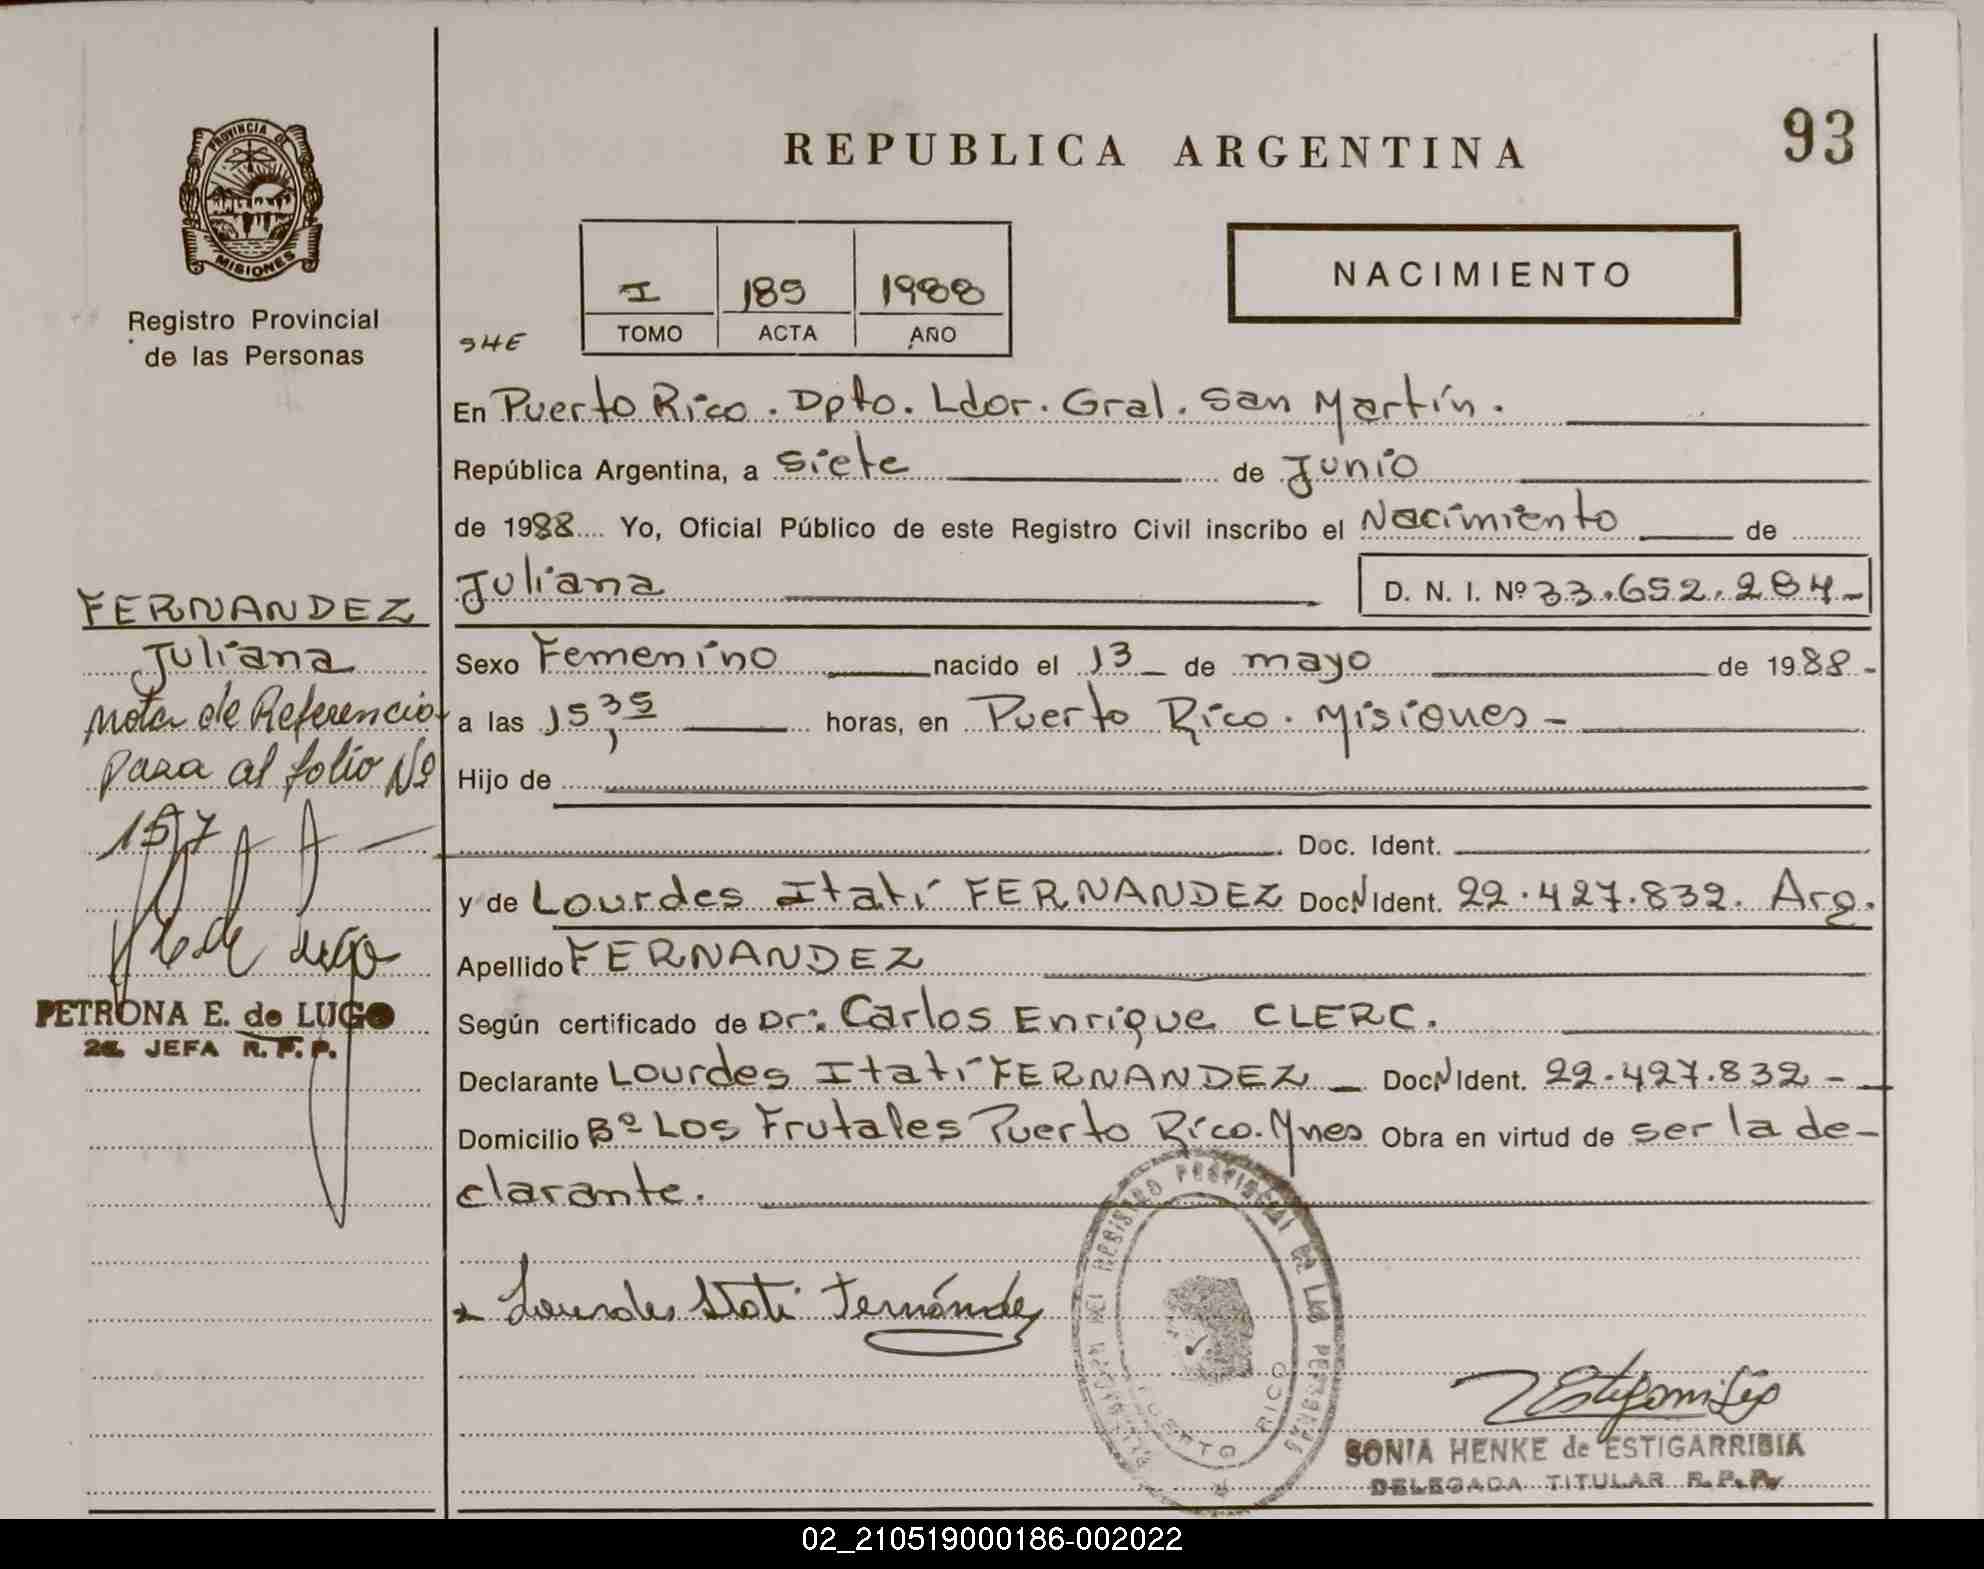 PROVINCIA DE
MISIONES
Registro Provincial
de las Personas
REPUBLICA ARGENTINA
93
NACIMIENTO
I 189 1988
TOMO ACTA AÑO
SHE
En Puerto Rico. Dpto. Ldor. Gral. San Martín.
República Argentina, a siete de Junio
de 1988 Yo, Oficial Público de este Registro Civil inscribo el Nacimiento de
Juliana D. N. I. Nº 33.652.284-
Sexo Femenino nacido el 13 de mayo de 1988-
a las 15,35 horas, en Puerto Rico. Misiones-
Hijo de
Doc. Ident.
y de Lourdes Itatí FERNANDEZ Doc. N Ident. 22.427.832. Arg.
Apellido FERNANDEZ
Según certificado de Dr: Carlos Enrique CLERC.
Declarante Lourdes Itatí FERNANDEZ Doc. N Ident. 22.427.832-
Domicilio Bº Los Frutales Puerto Rico. Mnes Obra en virtud de ser la de-
clarante.
FERNANDEZ
Juliana
Nota de Referencia
pasa al folio Nº
157
de Lugo
PETRONA E. de LUGO
2a. JEFA R. P. P.
Lourdes Itati Fernández
REGISTRO PROVINCIAL DE LAS PERSONAS
PUERTO RICO
SONIA HENKE de ESTIGARRIBIA
DELEGADA TITULAR R.P.P.
02_210519000186-002022